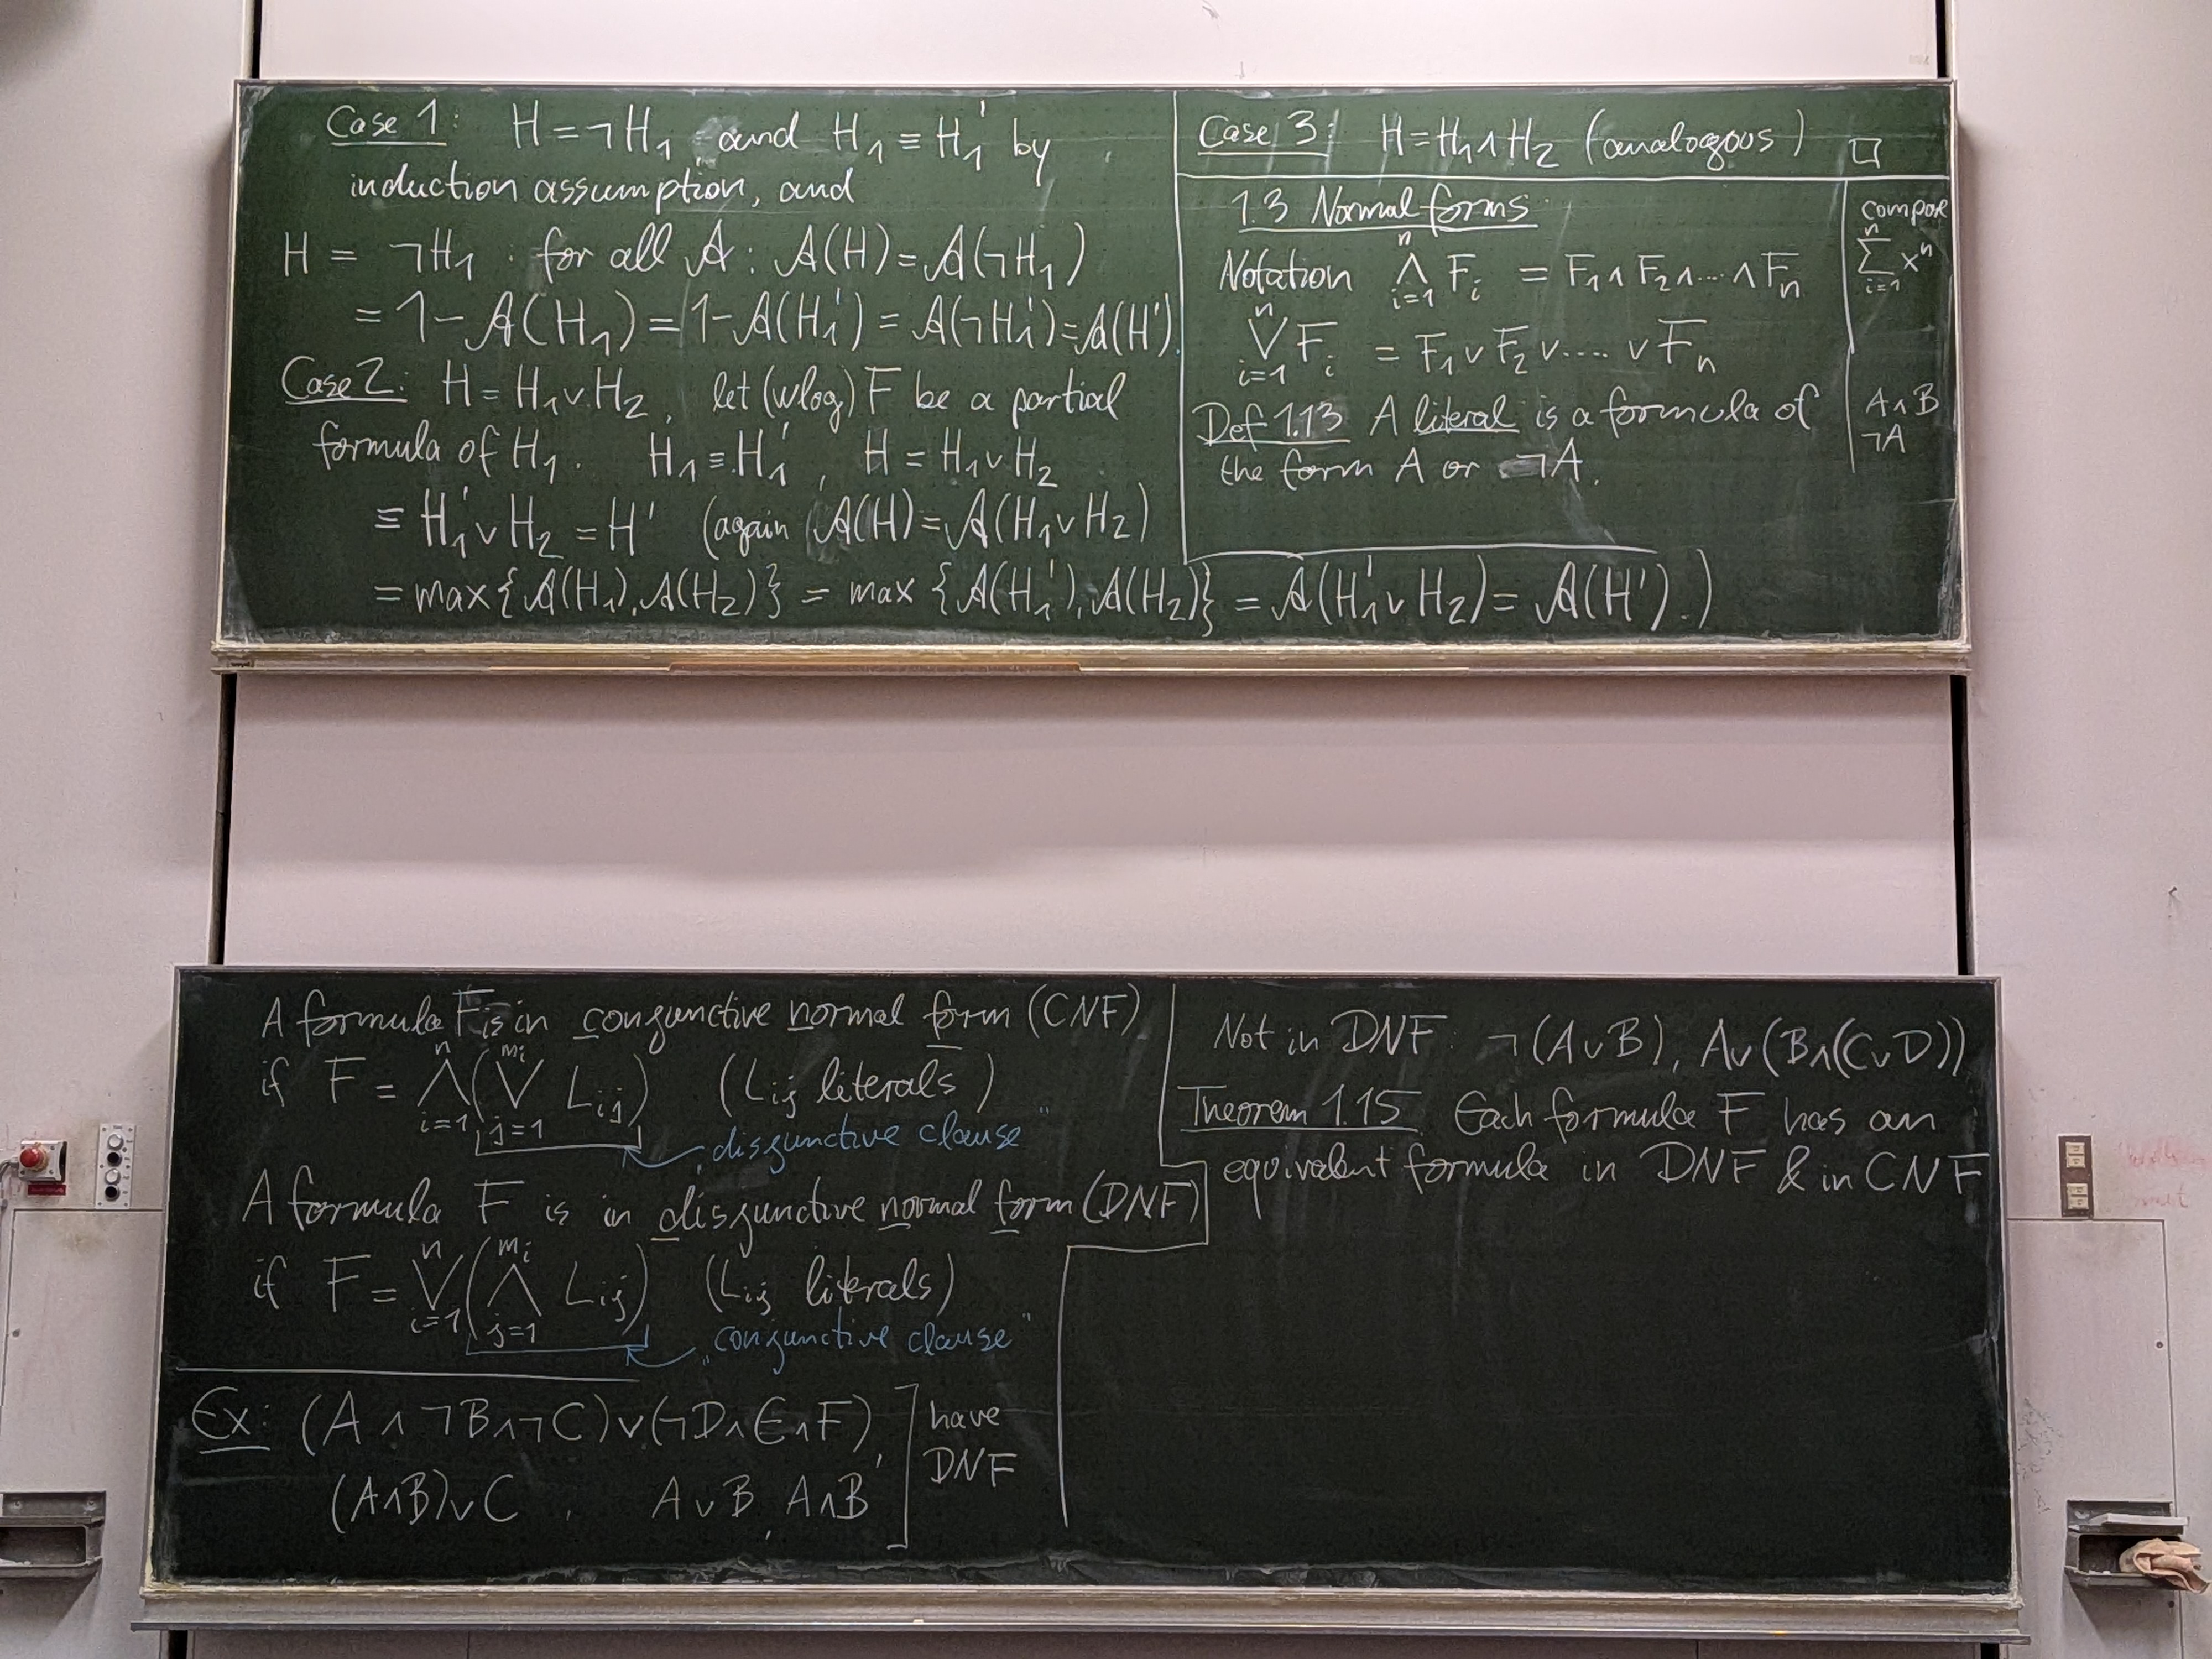 Case 1: H = ¬H₁ and H₁ ≡ H₁' by
induction assumption, and
H = ¬H₁ . for all 𝒜 : 𝒜(H) = 𝒜(¬H₁)
= 1 - 𝒜(H₁) = 1 - 𝒜(H₁') = 𝒜(¬H₁') = 𝒜(H').
Case 2: H = H₁ ∨ H₂, let (wlog) F be a partial
formula of H₁. H₁ ≡ H₁', H = H₁ ∨ H₂
≡ H₁' ∨ H₂ = H' (again 𝒜(H) = 𝒜(H₁ ∨ H₂)
= max{𝒜(H₁), 𝒜(H₂)} = max {𝒜(H₁'), 𝒜(H₂)} = 𝒜(H₁' ∨ H₂) = 𝒜(H').)
Case 3: H = H₁ ∧ H₂ (analogous) □
1.3 Normal forms
Notation ⋀_{i=1}^{n} F_i = F₁ ∧ F₂ ∧ .... ∧ F_n
⋁_{i=1}^{n} F_i = F₁ ∨ F₂ ∨ .... ∨ F_n
Def 1.13 A literal is a formula of
the form A or ¬A.
compar
∑_{i=1}^{n} x^n
A ∧ B
¬A
A formula F is in conjunctive normal form (CNF)
if F = ⋀_{i=1}^{n} (⋁_{j=1}^{m_i} L_{ij}) (L_{ij} literals)
„disjunctive clause"
A formula F is in disjunctive normal form (DNF)
if F = ⋁_{i=1}^{n} (⋀_{j=1}^{m_i} L_{ij}) (L_{ij} literals)
„conjunctive clause"
Ex: (A ∧ ¬B ∧ ¬C) ∨ (¬D ∧ E ∧ F),
(A ∧ B) ∨ C , A ∨ B, A ∧ B
have
DNF
Not in DNF: ¬(A ∨ B), A ∨ (B ∧ (C ∨ D))
Theorem 1.15 Each formula F has an
equivalent formula in DNF & in CNF